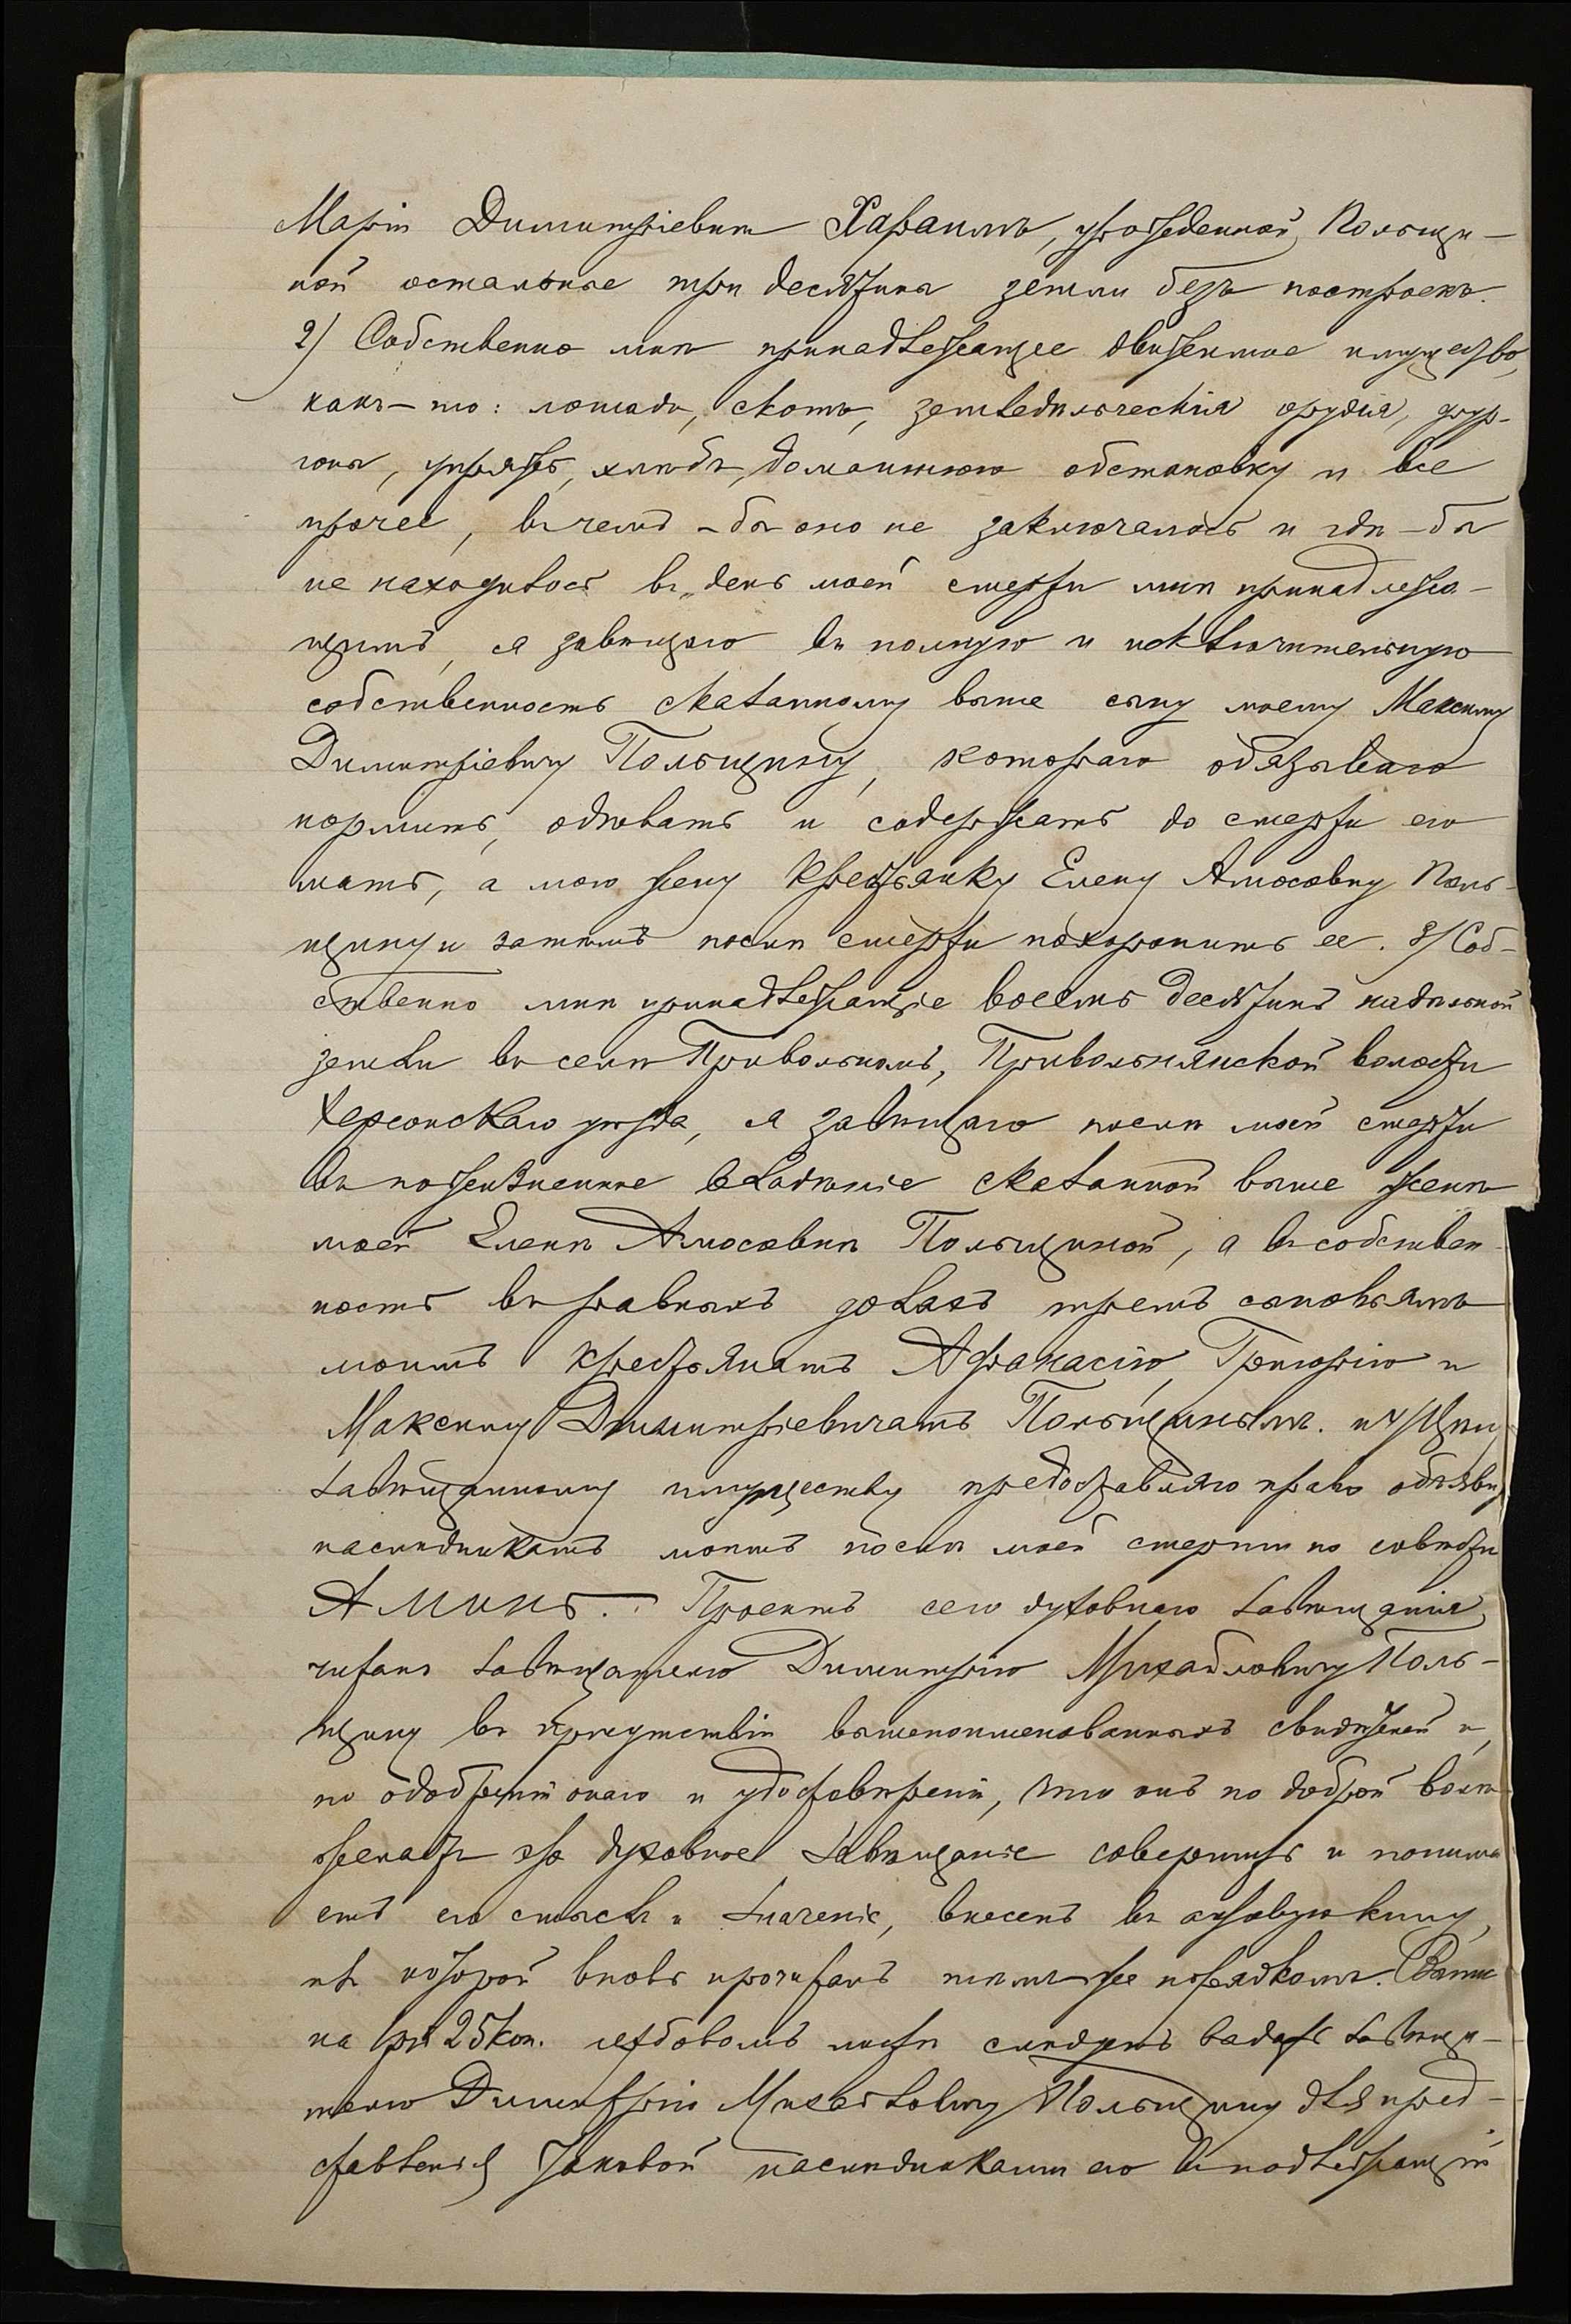 Маріи Димитріевнѣ Харашмъ, урожденной Польщи-
ной остальные три десятины земли безъ построекъ.
2) Собственно мнѣ принадлежащее движимое имущество,
какъ-то: лошади, скотъ, земледѣльческія орудія, фур-
гоны, упряжь, хлѣбъ, домашнюю обстановку и все
прочее, въ чемъ-бы оно не заключалось и гдѣ-бы
не находилось въ день моей смерти мнѣ принадлежа-
щимъ, я завѣщаю въ полную и исключительную
собственность сказанному выше сыну моему Максиму
Димитріевичу Польщину, котораго обязываю
кормить, одѣвать и содержать до смерти его
мать, а мою жену крестьянку Елену Амосовну Поль-
щину и затѣмъ послѣ смерти похоронить ее. 3) Соб-
ственно мнѣ принадлежащіе восемь десятинъ надѣльной
земли въ селѣ Привольномъ, Привольнянской волости
Херсонскаго уѣзда, я завѣщаю послѣ моей смерти
въ пожизненное владѣніе сказанной выше женѣ
моей Еленѣ Амосовнѣ Польщиной, а въ собствен-
ность въ равныхъ доляхъ тремъ сыновьямъ
моимъ крестьянамъ Афанасію, Григорію и
Максиму Димитріевичамъ Польщинымъ. и 4) Цѣну
завѣщанному имуществу предоставляю право объявить
наслѣдникамъ моимъ послѣ моей смерти по совѣсти
Аминь. Проектъ сего духовнаго завѣщанія
читанъ завѣщателю Димитрію Михайловичу Поль-
щину въ присутствіи вышепоименованныхъ свидѣтелей и,
по одобреніи онаго и удостовѣреніи, что онъ по доброй волѣ
желаетъ это духовное завѣщаніе совершить и понима
етъ его смыслъ и значеніе, внесенъ въ актовую книгу,
въ которой вновь прочитанъ тѣмъ же порядкомъ. Выпис
на 25 коп. гербовомъ листѣ слѣдуетъ выдать завѣща-
телю Димитрію Михайловичу Польщину для пред-
ставленія таковой наслѣдниками его въ подлежащій